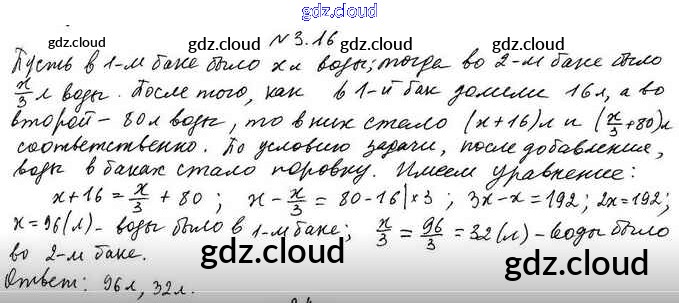 gdz.cloud
№3.16
gdz.cloud gdz.cloud
Пусть в 1-м баке было x л воды; тогда во 2-м баке было
x/3 л воды. После того, как в 1-й бак долили 16 л, а во
второй - 80 л воды, то в них стало (x+16) л и (x/3+80) л
gdz.cloud gdz.cloud
соответственно. По условию задачи, после добавления,
воды в баках стало поровну. Имеем уравнение:
x+16 = x/3 + 80; x - x/3 = 80-16 |×3; 3x-x=192; 2x=192;
gdz.cloud gdz.cloud
x=96(л) - воды было в 1-м баке; x/3 = 96/3 = 32(л) - воды было
во 2-м баке.
gdz.cloud
Ответ: 96л, 32л.
gdz.cloud